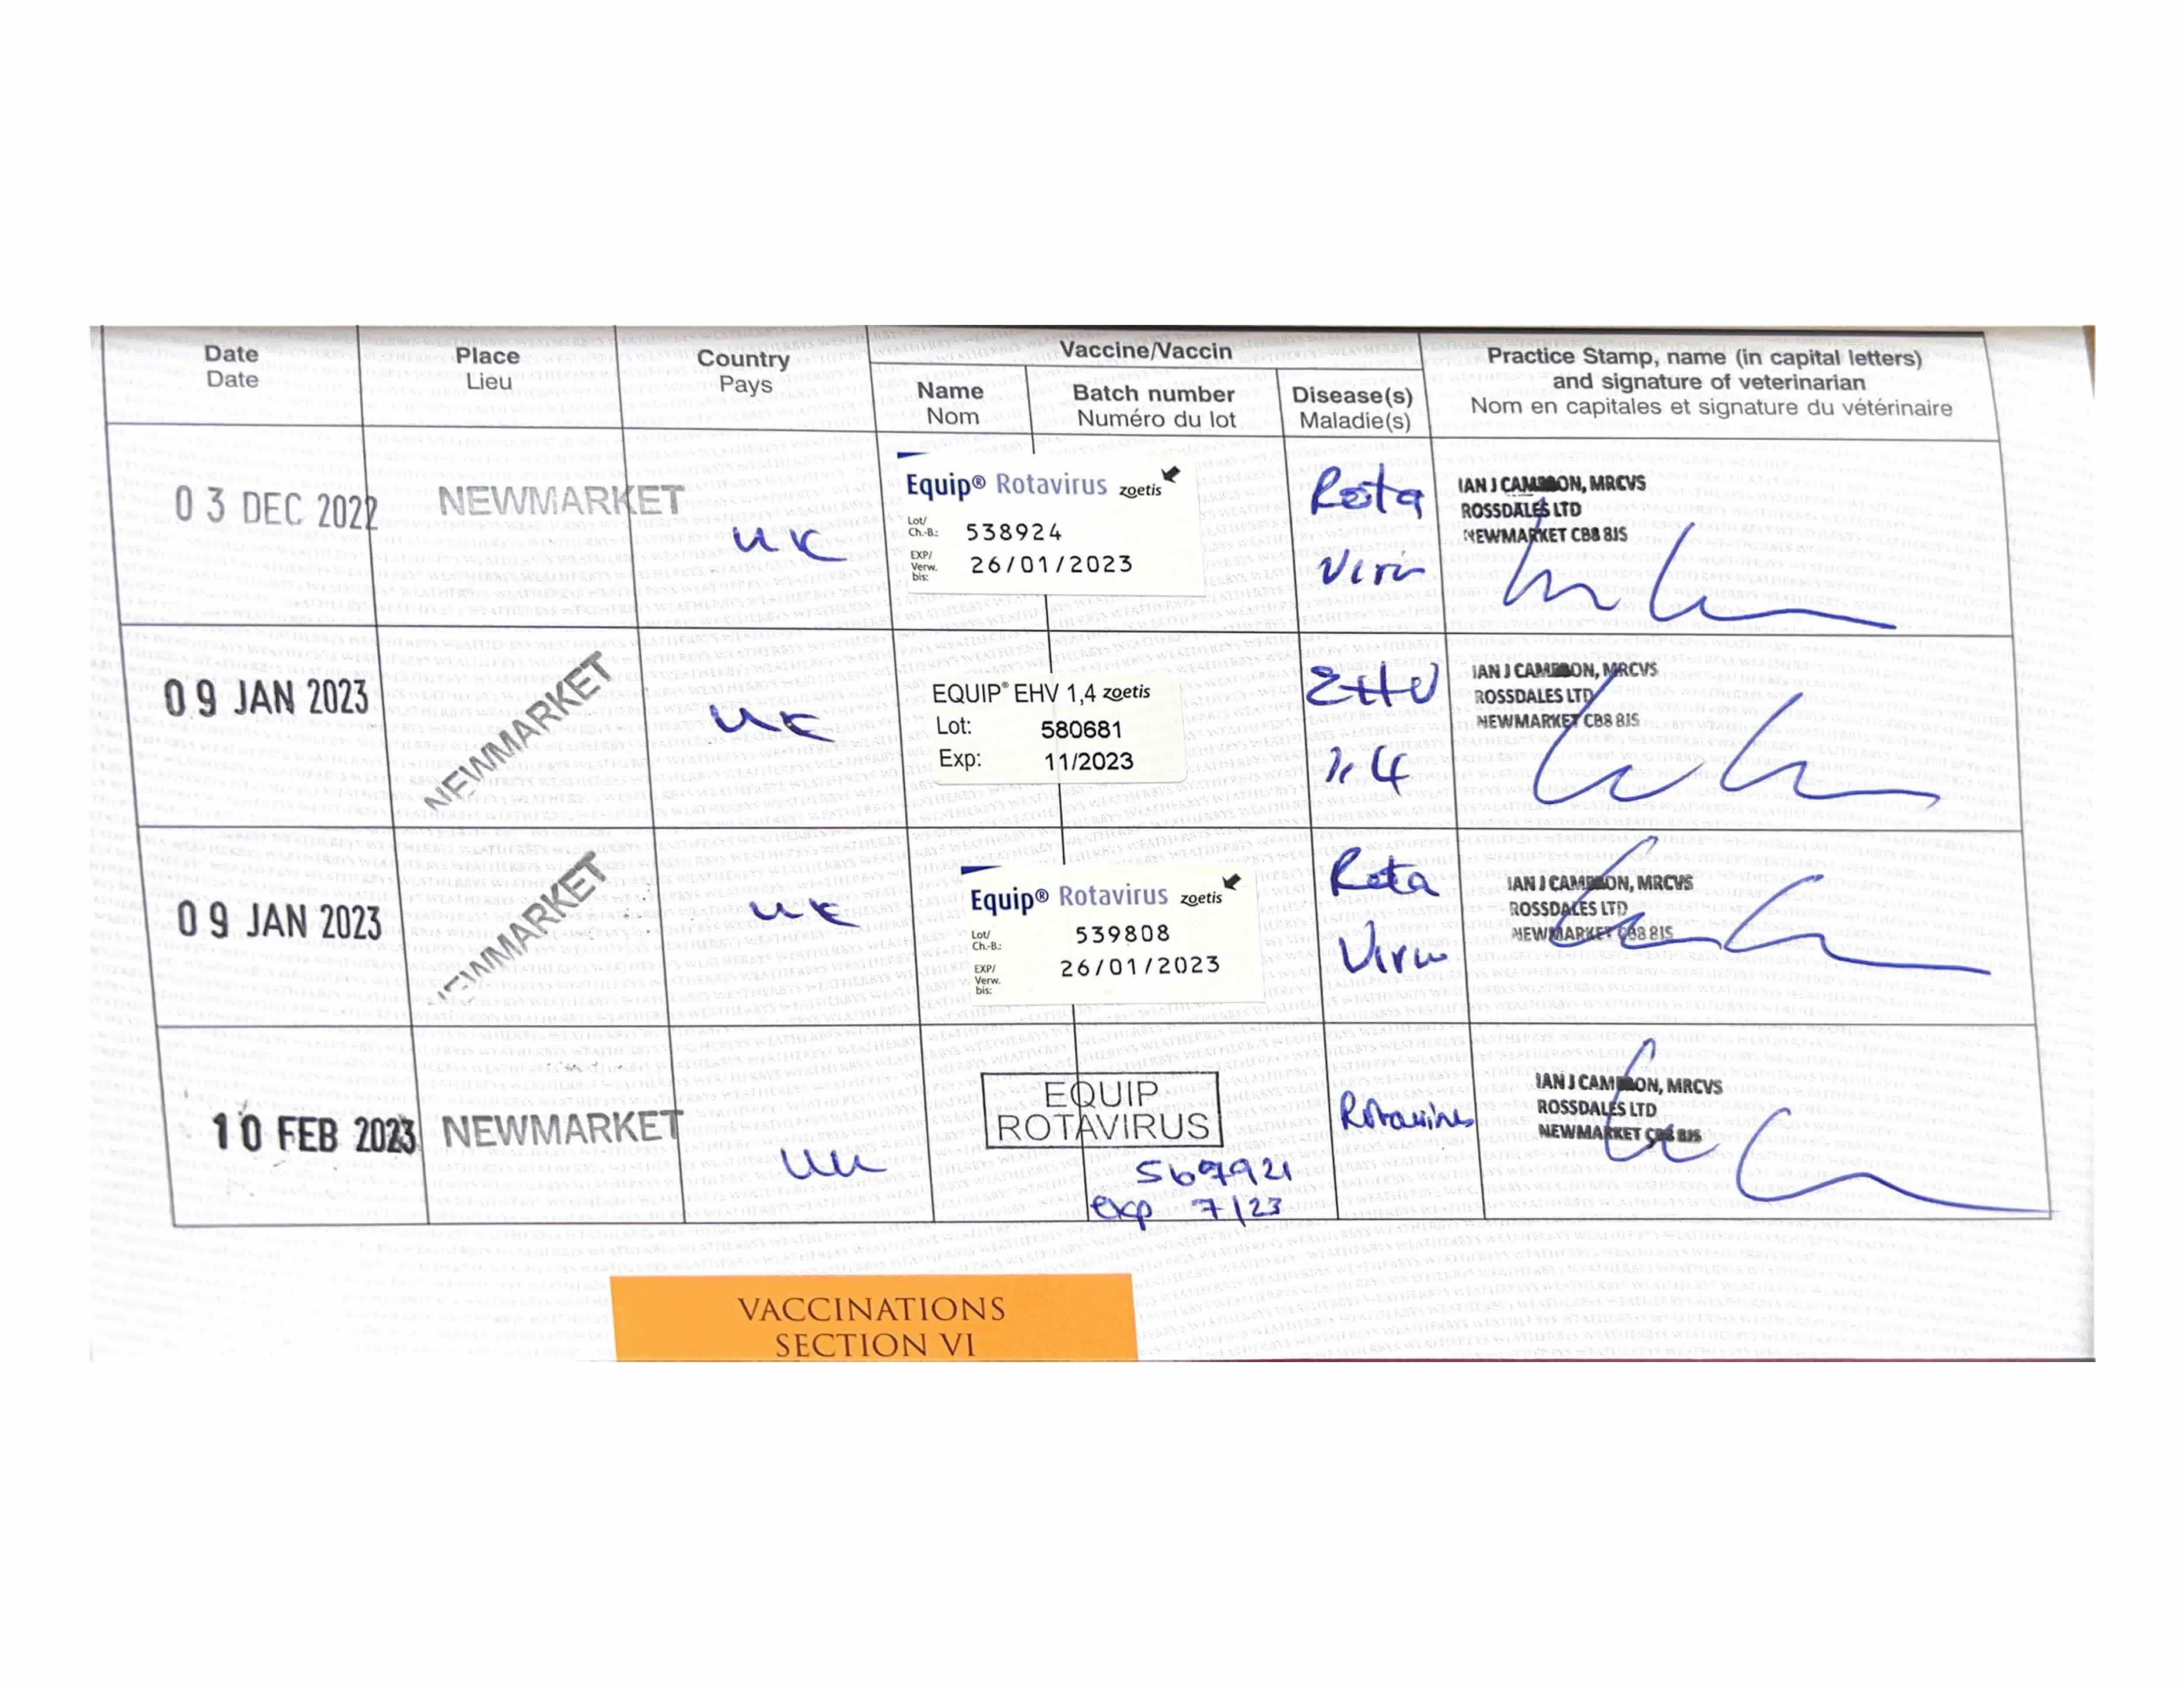 Date
Date
Place
Lieu
Country
Pays
Vaccine/Vaccin
Name
Nom
Batch number
Numéro du lot
Disease(s)
Maladie(s)
Practice Stamp, name (in capital letters)
and signature of veterinarian
Nom en capitales et signature du vétérinaire
03 DEC 2022
NEWMARKET
UK
Equip® Rotavirus zoetis
Lot/
Ch.-B.: 538924
EXP/
Verw.
bis: 26/01/2023
Rota
Virus
IAN J CAMERON, MRCVS
ROSSDALES LTD
NEWMARKET CB8 8JS
09 JAN 2023
NEWMARKET
UK
EQUIP® EHV 1,4 zoetis
Lot: 580681
Exp: 11/2023
EHV
1,4
IAN J CAMERON, MRCVS
ROSSDALES LTD
NEWMARKET CB8 8JS
09 JAN 2023
NEWMARKET
UK
Equip® Rotavirus zoetis
Lot/
Ch.-B.: 539808
EXP/
Verw.
bis: 26/01/2023
Rota
Virus
IAN J CAMERON, MRCVS
ROSSDALES LTD
NEWMARKET CB8 8JS
10 FEB 2023
NEWMARKET
UK
EQUIP
ROTAVIRUS
567921
exp 7/23
Rotavirus
IAN J CAMERON, MRCVS
ROSSDALES LTD
NEWMARKET CB8 8JS
VACCINATIONS
SECTION VI